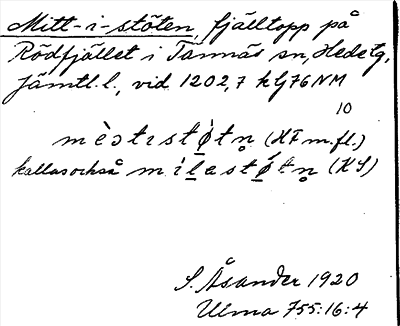 Mitt-i-stöten, fjälltopp på
Rödfjället i Tännäs sn, Hede tg,
Jämtl. l., vid 1202,7 k G76NM
10
(KF m.fl.)
kallas också (KS)
S. Åsander 1920
Ulma 755:16:4